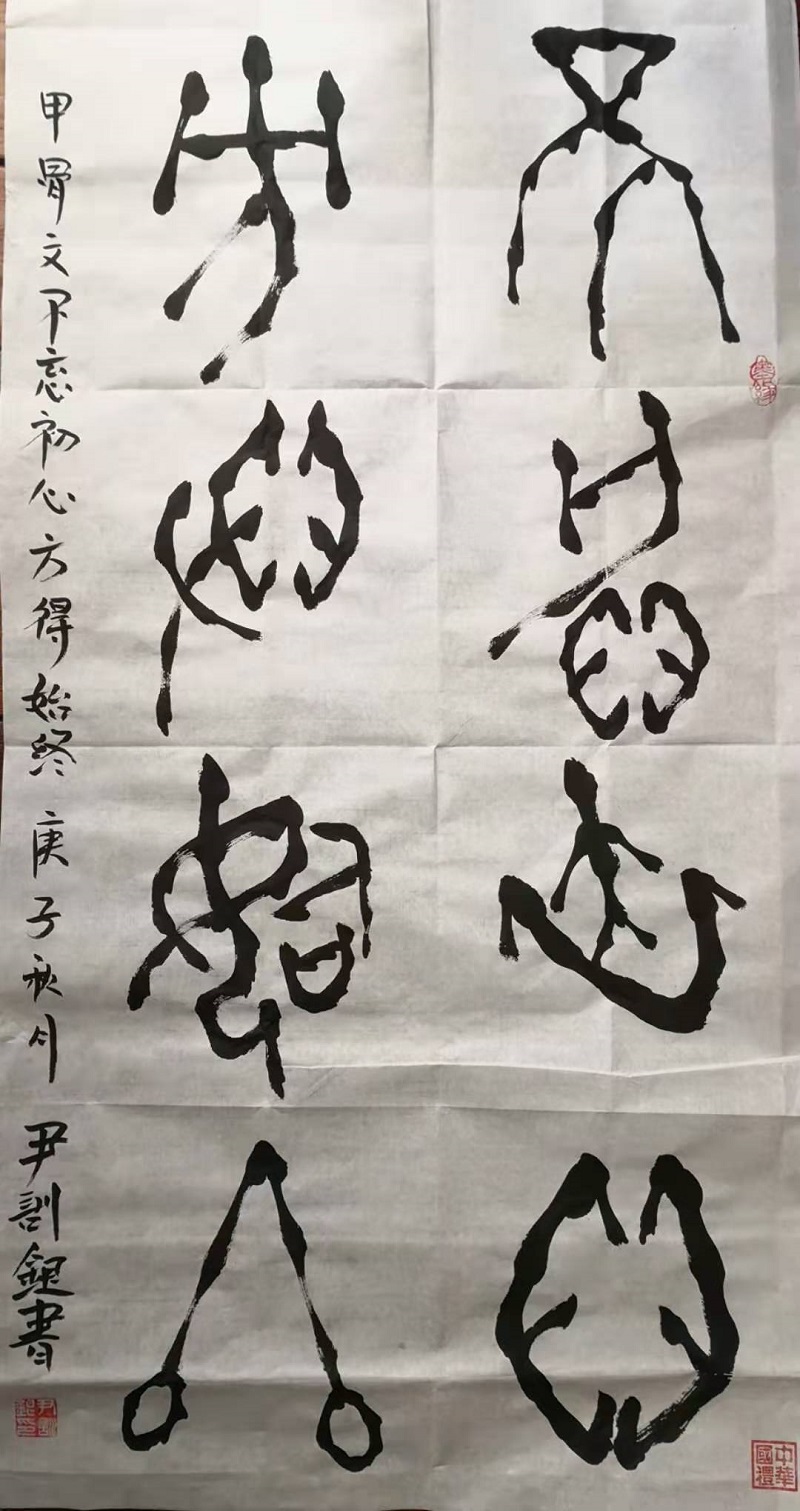 不忘初心
方得始终
甲骨文不忘初心方得始终 庚子秋月
尹訓銀書
中華國禮